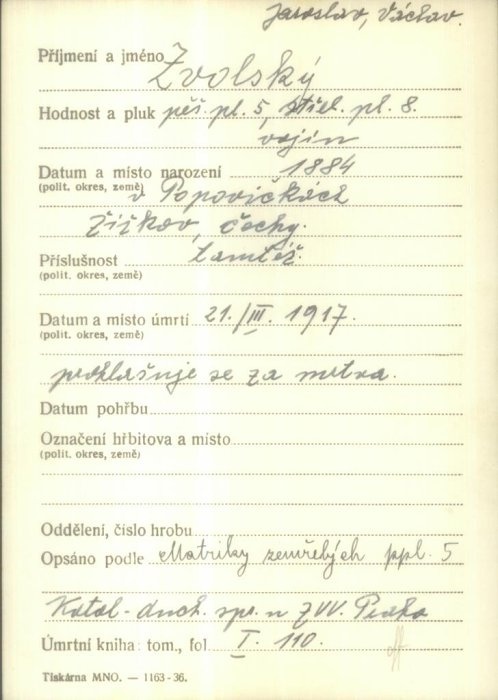 Jaroslav, Václav.
Příjmení a jméno Zvolský
Hodnost a pluk pěš. pl. 5, střel. pl. 8.
vojín
Datum a místo narození 1884
(polit. okres, země) v Popovičkách
Žižkov, Čechy.
Příslušnost tamtéž.
(polit. okres, země)
Datum a místo úmrtí 21./III. 1917.
(polit. okres, země)
prohlašuje se za mrtva.
Datum pohřbu
Označení hřbitova a místo
(polit. okres, země)
Oddělení, číslo hrobu
Opsáno podle Matriky zemřelých ppl. 5
Katol. duch. spr. u ZVV. Praha
Úmrtní kniha: tom., fol. I. 110.
Tiskárna MNO. — 1163-36.